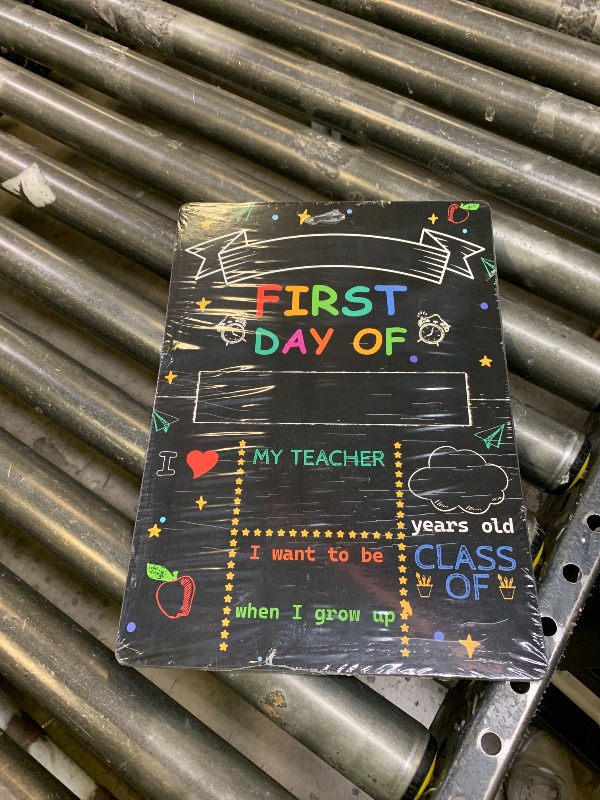 FIRST
DAY OF
I
MY TEACHER
years old
I want to be
when I grow up
CLASS
OF